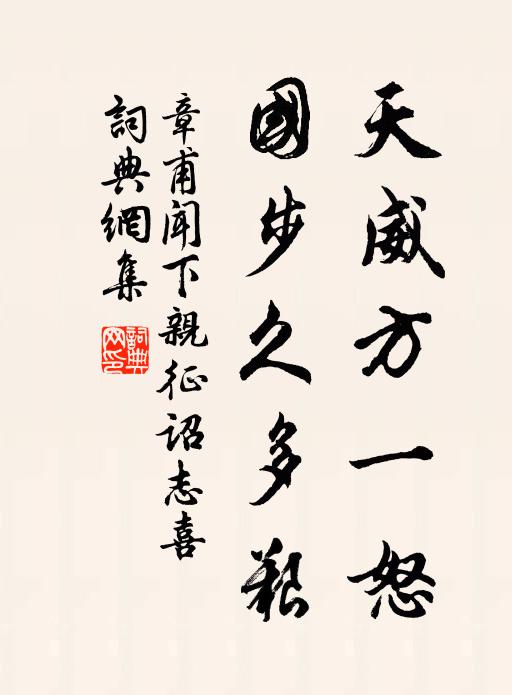 天威方一怒
國步久多艱
章甫聞下親征詔志喜
詞典網集
詞典網印